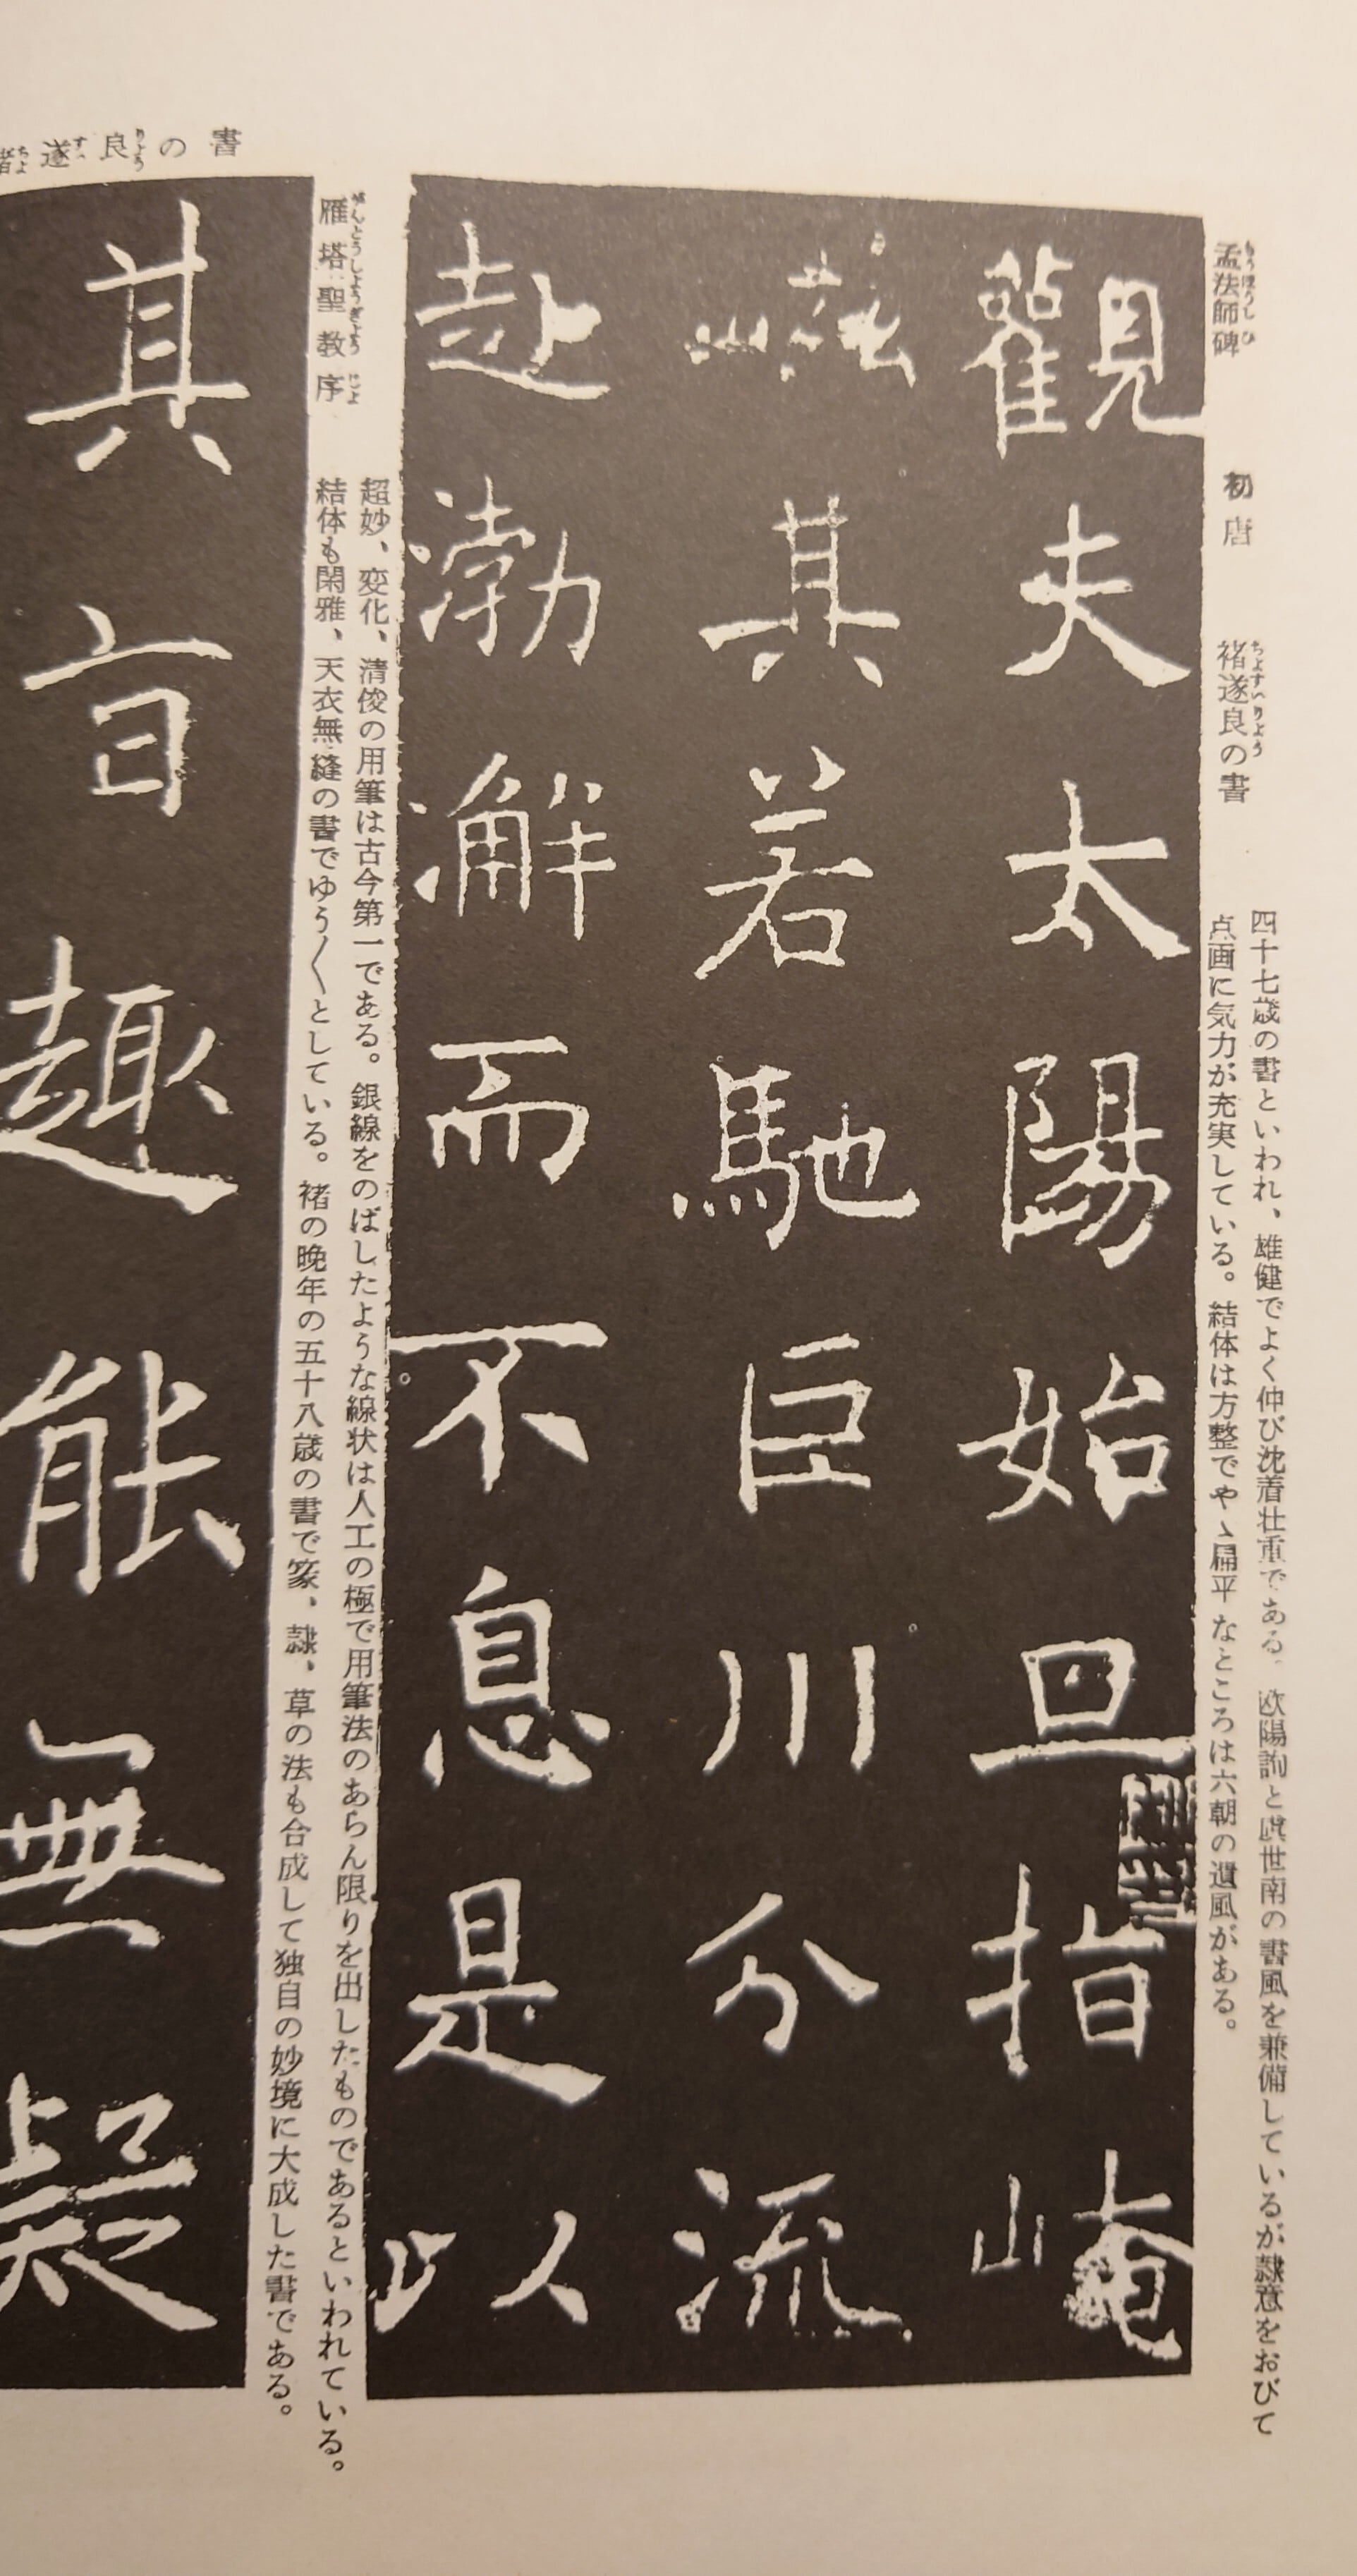 孟法師碑 初唐 褚遂良の書
四十七歳の書といわれ、雄健でよく伸び沈着壮重である。欧陽詢と虞世南の書風を兼備しているが隷意をおびて
点画に気力が充実している。結体は方整でやゝ扁平なところは六朝の遺風がある。
觀夫太陽始旦指崦
嵫其若馳巨川分流
赴渤澥而不息是以
超妙、変化、清俊の用筆は古今第一である。銀線をのばしたような線状は人工の極で用筆法のあらん限りを出したものであるといわれている。
雁塔聖教序 結体も閑雅、天衣無縫の書でゆう〱としている。褚の晩年の五十八歳の書で篆、隷、草の法も合成して独自の妙境に大成した書である。
褚遂良の書
其旨趣能無疑